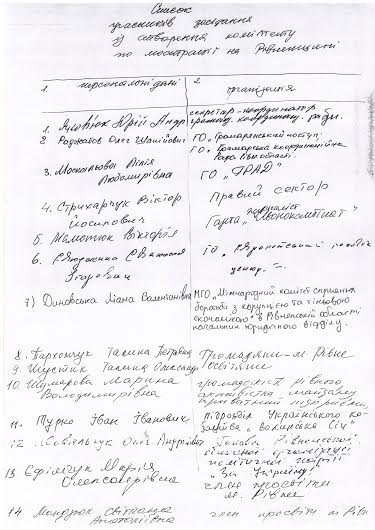 Список
учасників засідання
із створення комітету
по люстрації на Рівненщині
1. персональні дані
2. організація
1. Юрій Андр
секретар-координатор
громад. координац. ради.
2 Раджабов Олег
ГО „Громадянський поступ"
ГО „Громадська координаційна
Рада Рівн. області.
3. Москальова Лілія
Любомирівна
ГО „ГРАД"
4. Стрихарчук Віктор
Йосипович
Правий сектор
журналіст
5. Мамотюк Вікторія
Газета
6. Святослав
Ігорович
ГО
центр.
7) Диновська Ліана Валентинівна
МГО „Міжнародний комітет сприяння
боротьбі з корупцією та тіньовою
економікою" в Рівненській області
начальник юридичного відділу.
8. Пархомчук Галина Петрівна
Громадяни - м. Рівне
9. Шустік Галина Олександр
освітяни
10. Шумарова Марина
Володимирівна
громадськість рівного,
активістка майдану
11. Турко Іван Іванович
підрозділ Українського ко-
зацтва „Волинська Січ"
12. Ковальчук Олег Андрійович
Голова Рівненської
обласної організації
політичної партії
„За Україну"
13 Єфімчук Марія
Олександрівна
член просвіти
м. Рівне
14. Мандрюк Світлана
Анатоліївна
член просвіти м. Рівн